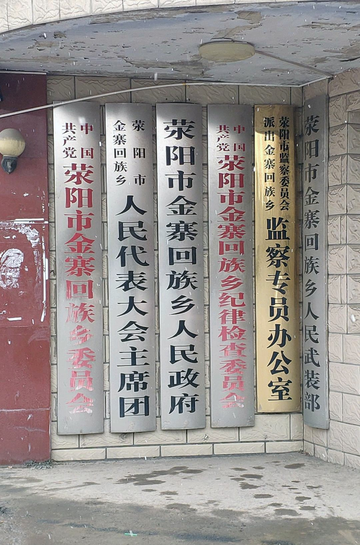 中国
共产党
荥阳市金寨回族乡委员会
荥阳市
金寨回族乡
人民代表大会主席团
荥阳市金寨回族乡人民政府
中国
共产党
荥阳市金寨回族乡纪律检查委员会
荥阳市监察委员会
派出金寨回族乡
监察专员办公室
荥阳市金寨回族乡人民武装部